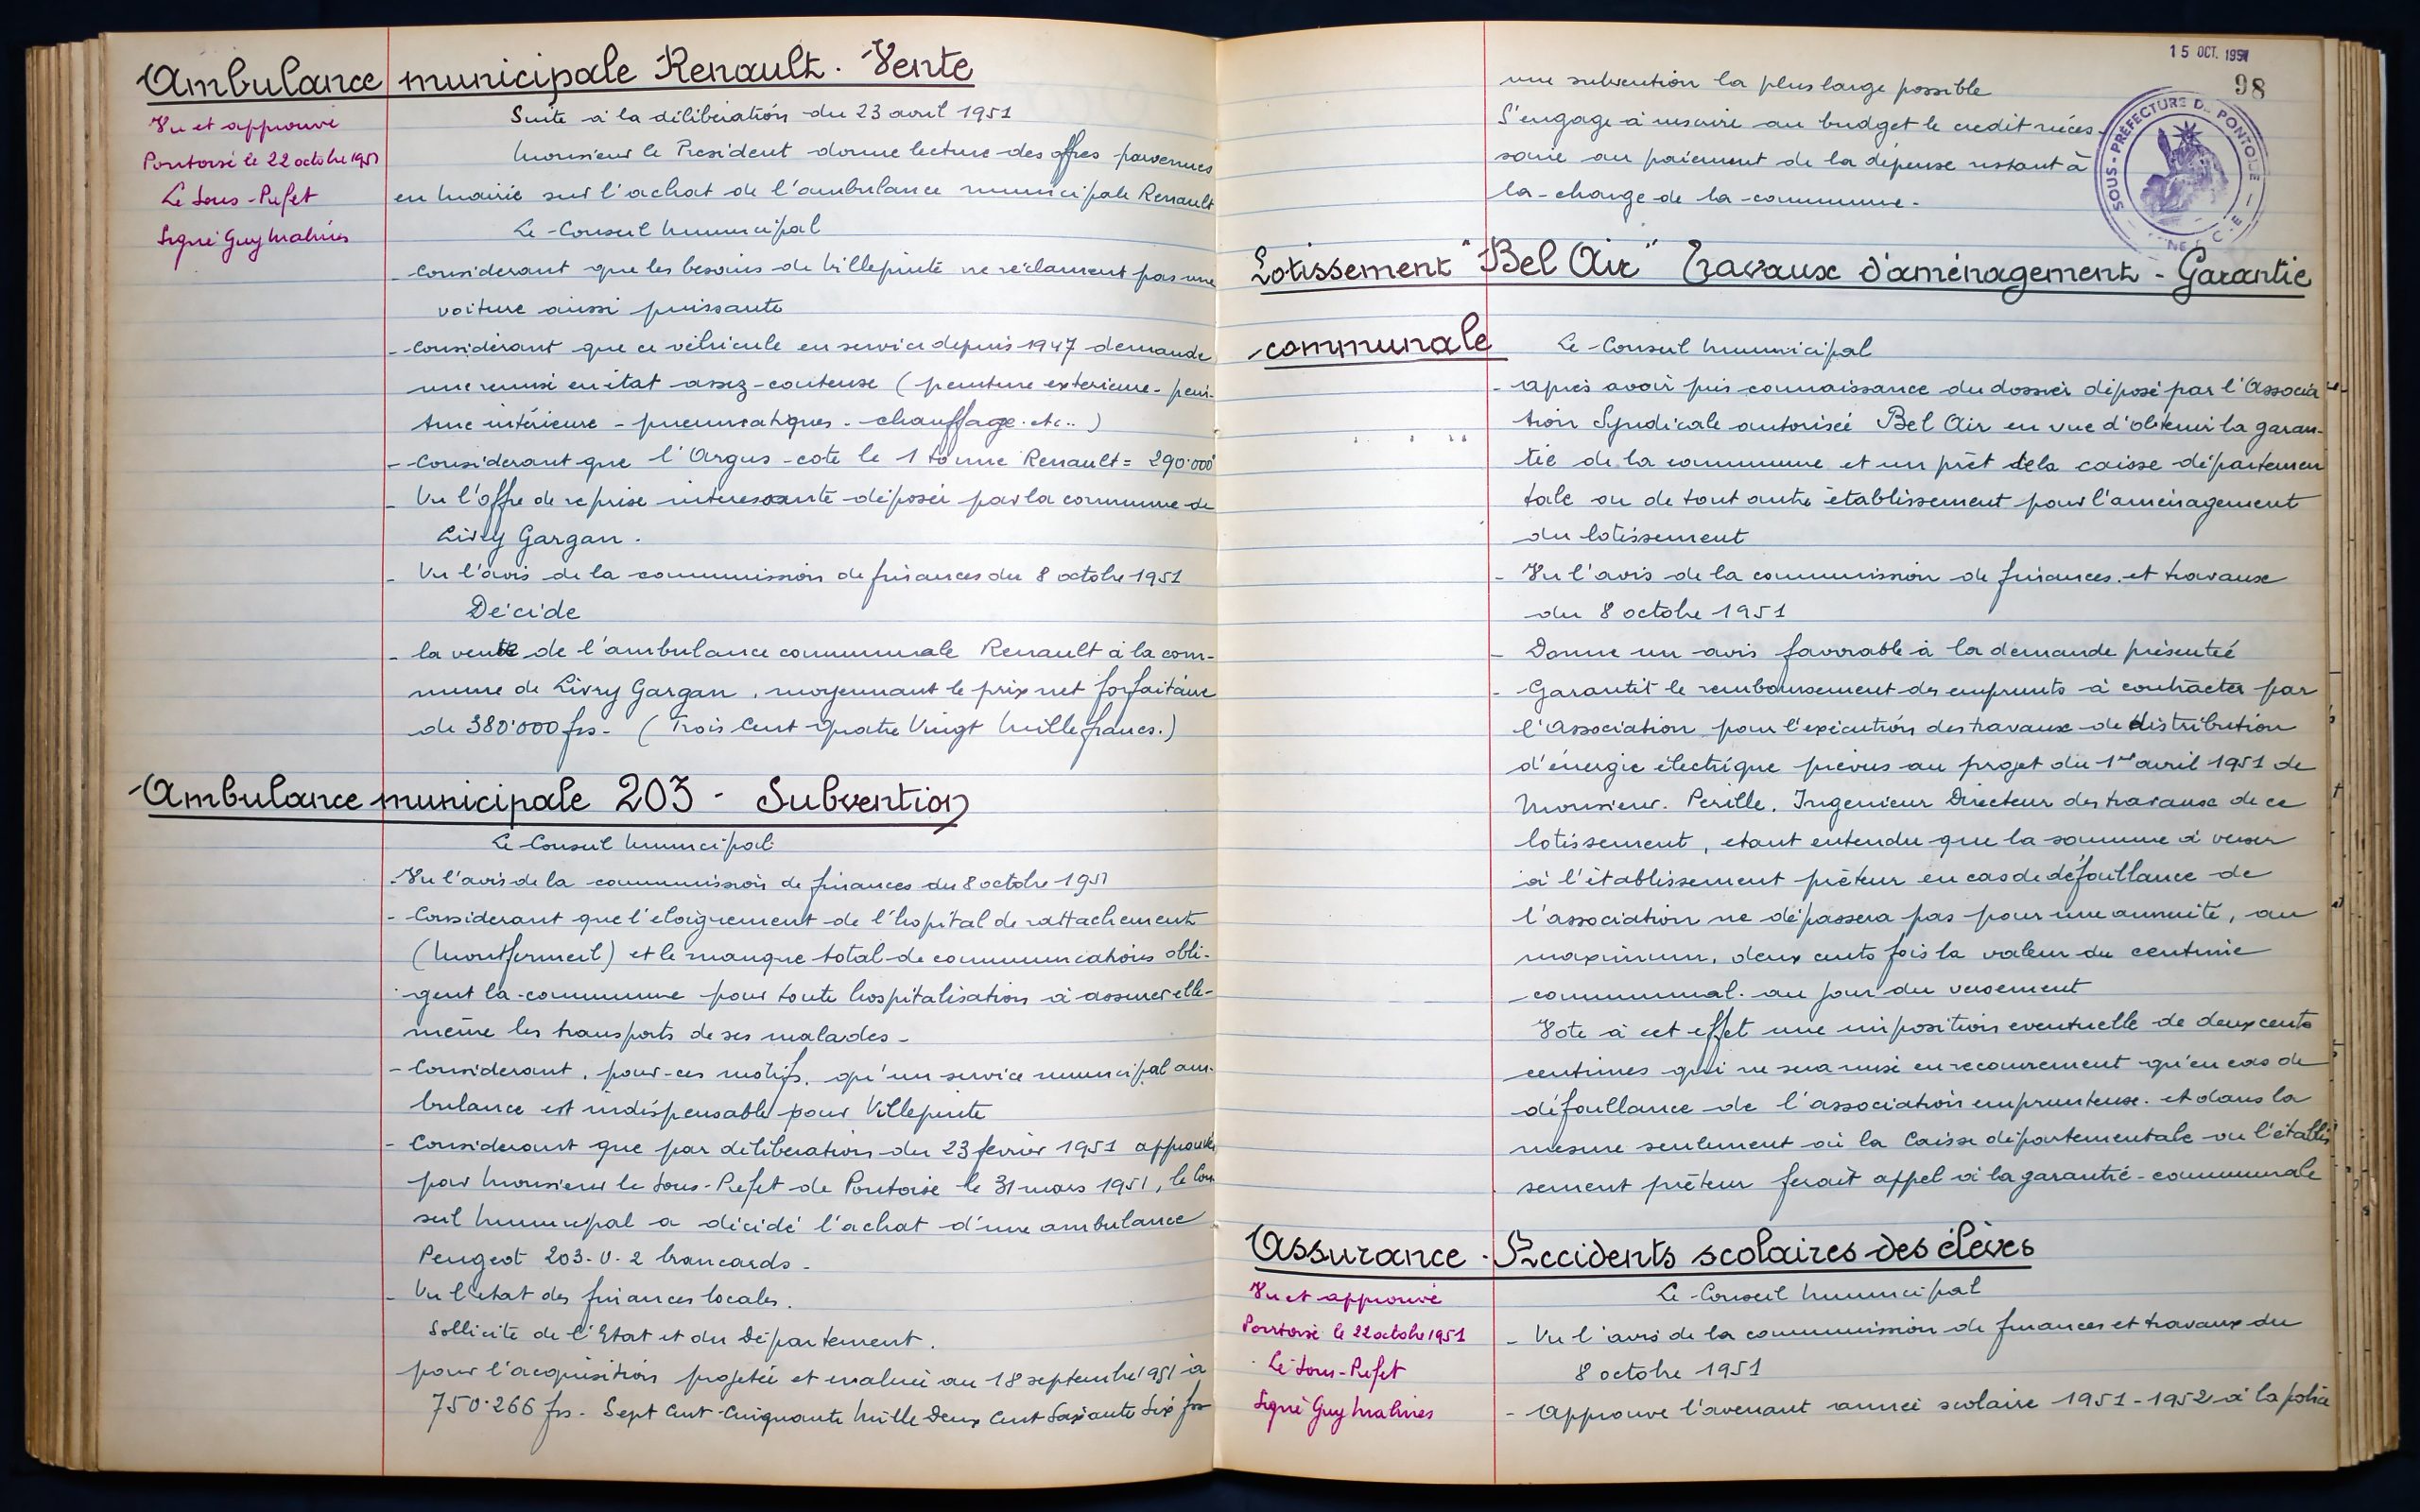 Ambulance municipale Renault. Vente
Vu et approuvé
Pontoise le 22 octobre 1951
Le Sous-Prefet
Signé Guy Malines
Suite à la délibération du 23 avril 1951
Monsieur le President donne lecture des offres parvenues
en Mairie sur l'achat de l'ambulance municipale Renault
Le Conseil Municipal
- Considerant que les besoins de Villepinte ne réclament pas une
voiture aussi puissante
- Considérant que ce véhicule en service depuis 1947 demande
une remise en état assez couteuse (peinture exterieure - pein-
ture intérieure - pneumatiques - chauffage. etc..)
- Considerant que l'Argus cote le 1 tonne Renault = 290.000
- Vu l'offre de reprise interessante déposée par la commune de
Livry Gargan.
- Vu l'avis de la commission de finances du 8 octobre 1951
Décide
- la vente de l'ambulance communale Renault à la com-
mune de Livry Gargan, moyennant le prix net forfaitaire
de 380.000 frs. (Trois Cent Quatre Vingt Mille francs.)
Ambulance municipale 203 - Subvention
Le Conseil Municipal
- Vu l'avis de la commission de finances du 8 octobre 1951
- Considerant que l'eloignement de l'hopital de rattachement
(Montfermeil) et le manque total de communications obli-
gent la commune pour toute hospitalisation à assurer elle-
même les transports de ses malades -
- Considerant, pour ces motifs, qu'un service municipal am-
bulance est indispensable pour Villepinte
- Considerant que par déliberation du 23 fevrier 1951 approuvée
par Monsieur le Sous-Prefet de Pontoise le 31 mars 1951, le Con
seil Municipal a décidé l'achat d'une ambulance
Peugeot 203. U. 2 brancards -
- Vu l'etat des finances locales.
Sollicite de l'Etat et du Département.
pour l'acquisition projetée et evaluée au 18 septembre 1951 à
750.266 frs. Sept Cent Cinquante Mille Deux Cent Soixante Six frs
15 OCT. 1951
98
SOUS-PRÉFECTURE DE PONTOISE
une subvention la plus large possible
S'engage à inscrire au budget le credit néces-
saire au paiement de la dépense restant à
la charge de la commune.
Lotissement "Bel Air" Travaux d'aménagement - Garantie
communale
Le Conseil Municipal
- Après avoir pris connaissance du dossier déposé par l'Associa
tion Syndicale autorisée Bel Air en vue d'obtenir la garan-
tie de la commune et un prêt de la caisse départemen
tale ou de tout autre établissement pour l'aménagement
du lotissement
- Vu l'avis de la commission de finances et travaux
du 8 octobre 1951
- Donne un avis favorable à la demande présentée
- Garantit le remboursement des emprunts à contracter par
l'Association pour l'exécution des travaux de distribution
d'énergie électrique prévus au projet du 1er avril 1951 de
Monsieur. Perille, Ingenieur Directeur des travaux de ce
lotissement, etant entendu que la somme à verser
à l'établissement prêteur en cas de défaillance de
l'association ne dépassera pas pour une annuité, au
maximum, deux cents fois la valeur du centime
communal. au jour du versement
Vote à cet effet une imposition eventuelle de deux cents
centimes qui ne sera mise en recouvrement qu'en cas de
défaillance de l'association emprunteuse. et dans la
mesure seulement où la Caisse départementale ou l'établis
sement prêteur ferait appel à la garantie communale
Assurance - Accidents scolaires des élèves
Vu et approuvé
Pontoise le 22 octobre 1951
Le Sous-Prefet
Signé Guy Malines
Le Conseil Municipal
- Vu l'avis de la commission de finances et travaux du
8 octobre 1951
- Approuve l'avenant année scolaire 1951-1952 à la police